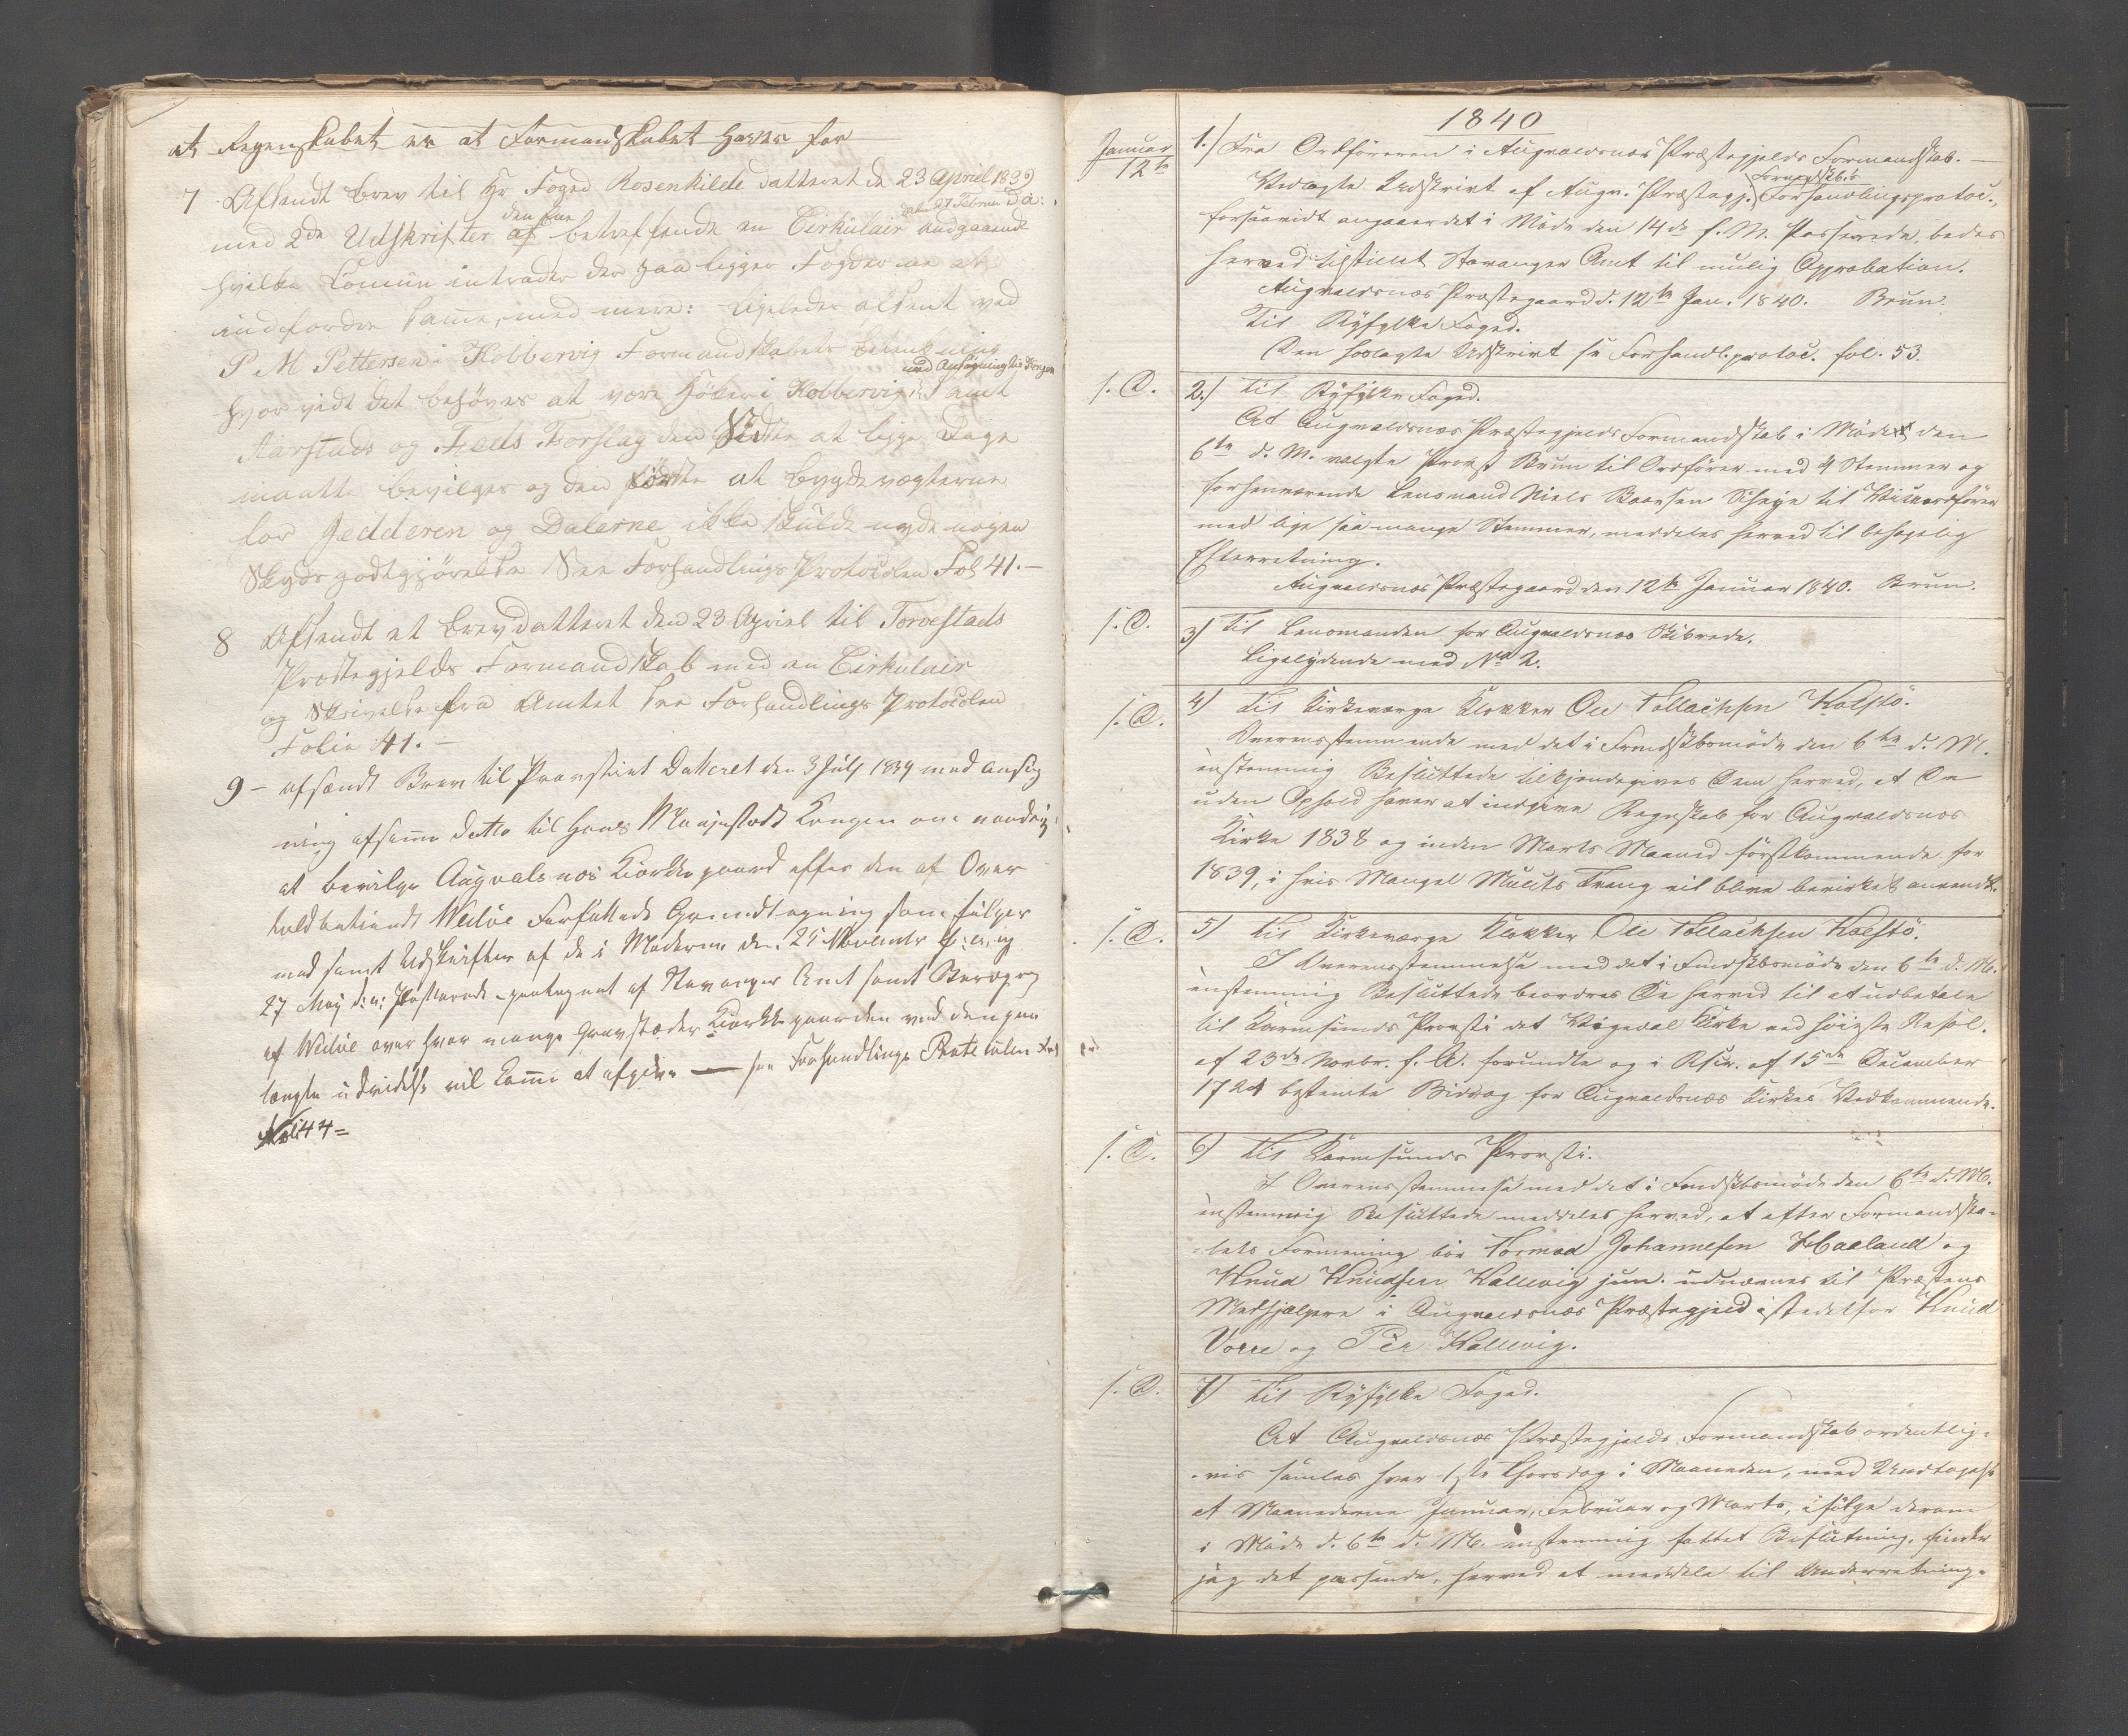 at Regenskabet er at Formandskabet haver for
7 Afsendt brev til Hr Foged Rosenkilde datteret d 23 Apriel 1839
med 2de Udskrifter af den ene betreffende en Cirkulair dat. 27 Februar d: a: andgaaende
hvilke Comün intrader der paa ligger Fogderne at
indfordre samme, med mere: ligeledes afsent ved
P M Pettersen i Kobbervig Formandskabets betenkning
hvor vidt det behøves at være Høker i Kobbervig med Ansøgning til Kongen samt
Aarstads og Feds Forslag den Sidste at ligge Dage
maatte bevilges og den første at bygdevægterne
for Jedderen og Dalerne ikke skulde nyde nogen
Skydsgodtgjørelse See Forhandlings Protocolen Fol 41.-
8 Afsendt et brev datteret den 23 Apriel til Torvestads
Præstegjelds Formandskab med en Cirkulair
og Skrivelse fra Amtet see Forhandlings Protocolen
Folie 41.-
9 - afsendt Brev til Provstiet Datteret den 3 July 1839 med ansøg
ning afsamme Datto til Hans Majestæt Kongen om naadigst
at bevilge Augvalsnæs Kirkegaard efter den af Over
Weiløe Forfattede Grundtegning som følger
med samt Udskrifter af de i Møderne den 25 November f: a: og
27 May d: a: Passerede - paategnet af Stavanger Amt samt
af Weiløe over hvor mange Gravstæder Kirkegaarden ved den paa
tængte udvidelse vil komme at afgive — see Forhandlings Protocolen
Foli 44=
1840
Januar
12te
1.) Fra Ordføreren i Augvaldsnæs Præstegjelds Formandskab. —
Vedlagte Udskrivt af Augv. Præstegj. Formandskabs Forhandlingsprotoc.,
forsaavidt angaaer det i Møde den 14de f. M. Passerede, bedes
herved tilstillet Stavanger Amt til mulig Approbation.
Augvaldsnæs Præstegaard d. 12te Jan. 1840. Brun.
Til Ryfylke Foged.
Den hoslagte Udskrivt se Forhandl.protoc. fol. 53.
s. D. 2.) Til Ryfylke Foged.
At Augvaldsnæs Præstegjelds Formandskab i Møde den
6te d. M. valgte Provst Brun til Ordfører med 4 Stemmer og
forhenværende Lensmand Niels Baarsen Scheje til Viceordfører
med lige saa mange Stemmer, meddeles herved til behagelig
Efterretning.
Augvaldsnæs Præstegaard den 12te Januar 1840. Brun.
s. D. 3) Til Lensmanden for Augvaldsnæs Skibrede.
Ligelydende med No 2.
s. D. 4) Til Kirkeværge Klokker Ole Tollachsen Kolstö.
Overensstemmende med det i Frmdskbsmøde den 6te d. M.
eenstemmig Besluttede tilkjendegives Dem herved, at De
uden Ophold haver at indgive Regnskab for Augvaldsnæs
Kirke 1838 og inden Marts Maaned førstkommende for
1839, i hvis Mangel Mulcts Tvang vil blive bevirket anvendt.
s. D. 5) Til Kirkeværge Klokker Ole Tollachsen Kolstö.
I Overensstemmelse med det i Fmdskbsmøde den 6te d. M.
eenstemmig Besluttede beordres De herved til at udbetale
til Karmsunds Provsti det Vigedal Kirke ved høieste Resol.
af 23de Novbr. f. A. forundte og i Rscr. af 15de December
1724 bestemte Bidrag for Augvaldsnæs Kirkes Vedkommende.
s. D. 6) Til Karmsunds Provsti.
I Overensstemmelse med det i Fmdskbsmøde den 6te d. M.
eenstemmig Besluttede meddeles herved, at efter Formandska-
-bets Formening bør Tormod Johannesen Haaland og
Knud Knudsen Kallevig jun. udnævnes til Præstens
Medhjælpere i Augvaldsnæs Præstegjeld istedetfor Knud
Vorre og Peer Kallevig.
s. D. 7) Til Ryfylke Foged.
At Augvaldsnæs Præstegjelds Formandskab ordentlig-
-viis samles hver 1ste Thorsdag i Maaneden, med Undtagelse
af Maanederne Januar, Februar og Marts, ifølge derom
i Møde d. 6te d. M. eenstemmig fattet Beslutning, finder
jeg det passende, herved at meddele til Underretning.